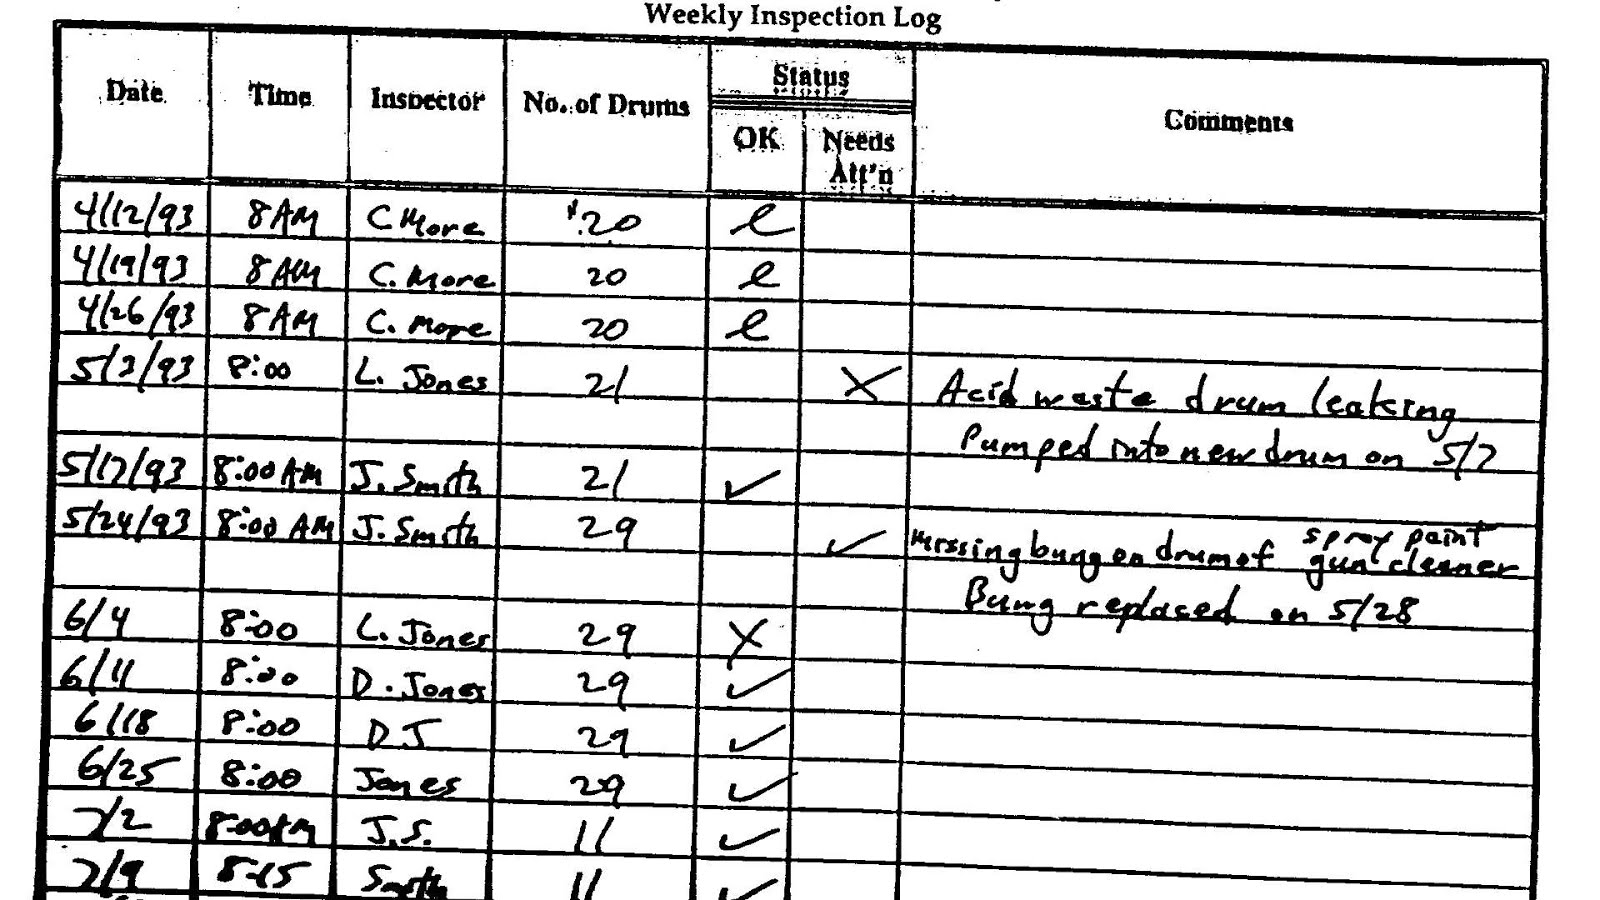 Weekly Inspection Log
Date Time Inspector No. of Drums Status Comments
OK Needs Att'n
4/12/93 8 AM C More 20
4/19/93 8 AM C. More 20
4/26/93 8 AM C. More 20
5/3/93 8:00 L. Jones 21 X Acid waste drum leaking
Pumped into new drum on 5/7
5/17/93 8:00 AM J. Smith 21 ✓
5/24/93 8:00 AM J. Smith 29 ✓ Missing bung on drum of spray paint gun cleaner
Bung replaced on 5/28
6/4 8:00 L. Jones 29 X
6/11 8:00 D. Jones 29 ✓
6/18 8:00 D J 29 ✓
6/25 8:00 Jones 29 ✓
7/2 8:00 AM J.S. 11 ✓
7/9 8-15 Smith 11 ✓